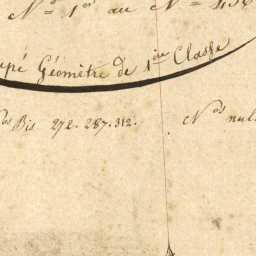 N.º 1.er au N.º 436
upé Géomètre de 1ère Classe
Nos Bis 272. 287. 312.
Nos nuls